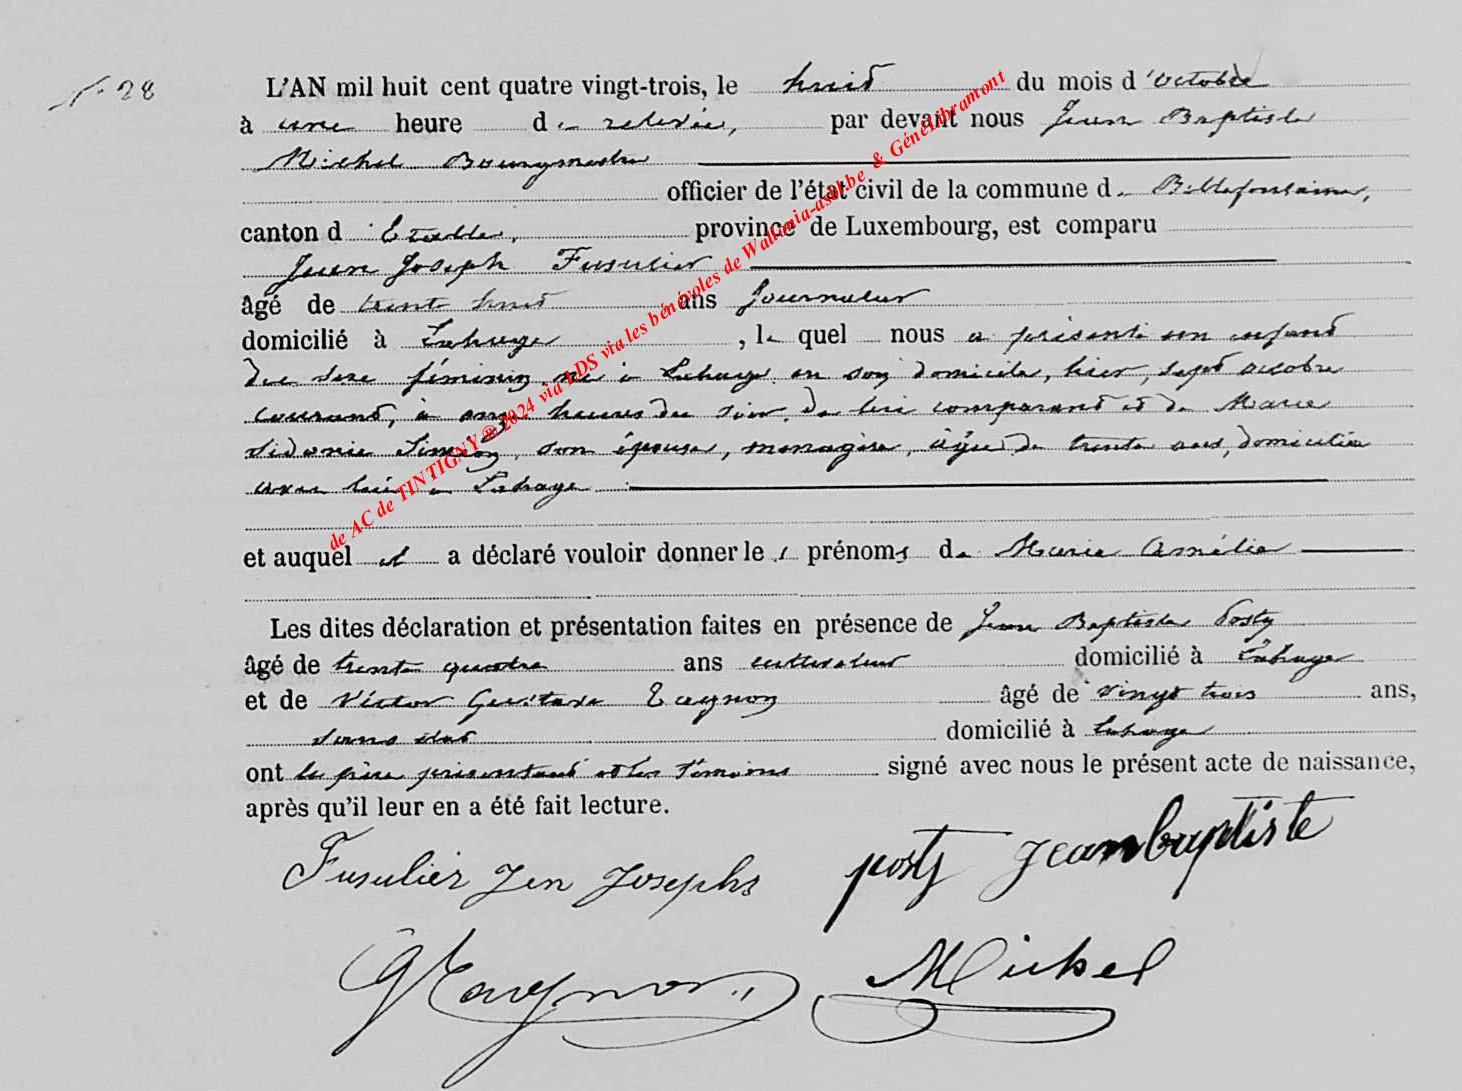 N° 28
L'AN mil huit cent quatre vingt-trois, le huit du mois d'octobre
à une heure de relevée, par devant nous Jean Baptiste
Michel Bourgmestre
officier de l'état civil de la commune de Bellefontaine,
canton d'Etalle, province de Luxembourg, est comparu
Jean Joseph Fusulier
âgé de trente huit ans Journalier
domicilié à Lahage, le quel nous a présenté un enfant
du sexe féminin né à Lahage en son domicile, hier, sept octobre
courant, à onze heures du soir, de lui comparant et de Marie
Sidonie Simon, son épouse, ménagère, âgée de trente ans, domiciliée
avec lui à Lahage
et auquel il a déclaré vouloir donner les prénoms de Marie Amélie
Les dites déclaration et présentation faites en présence de Jean Baptiste Posty
âgé de trente quatre ans cultivateur domicilié à Lahage
et de Victor Gustave Taynon âgé de vingt trois ans,
sans état domicilié à Lahage
ont le père présentant et les témoins signé avec nous le présent acte de naissance,
après qu'il leur en a été fait lecture.
Fusulier Jen Josephs posty jeanbaptiste
G Taynon Michel
de AC de TINTIGNY ® 2024 via LDS via les bénévoles de Wallonia-asbl.be & GénéLibramont